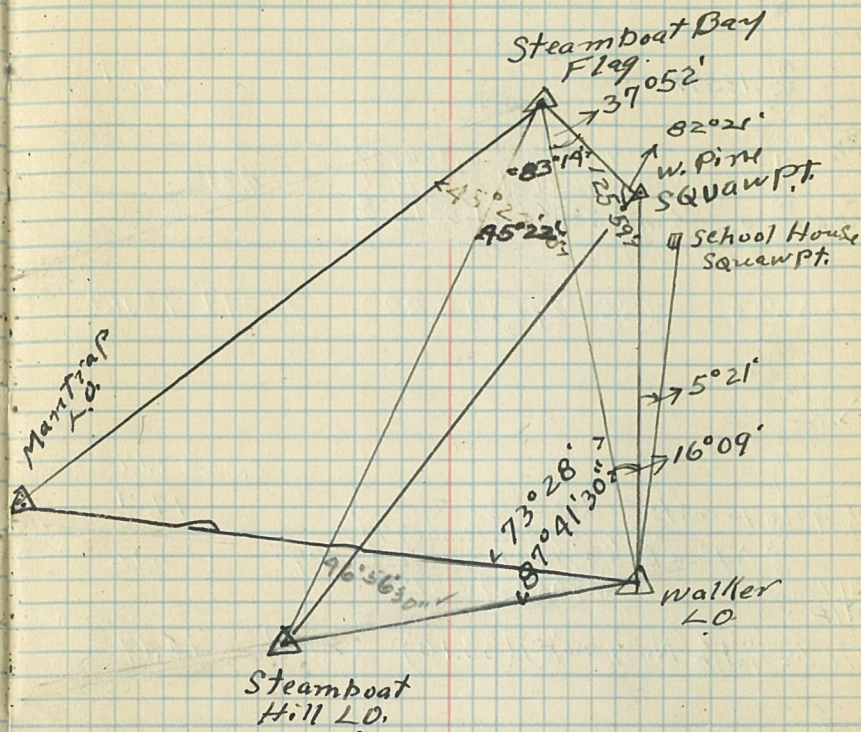 Steamboat Bay
Flag.
37°52'
82°21'
W. Pine
SQUAW Pt.
School House
Squaw Pt.
83°14'
125°59'
45°22'
45°22'
Mantrap
L.O.
5°21'
16°09'
73°28'
87°41'30"
46°56'30"
Walker
L.O.
Steamboat
Hill L.O.